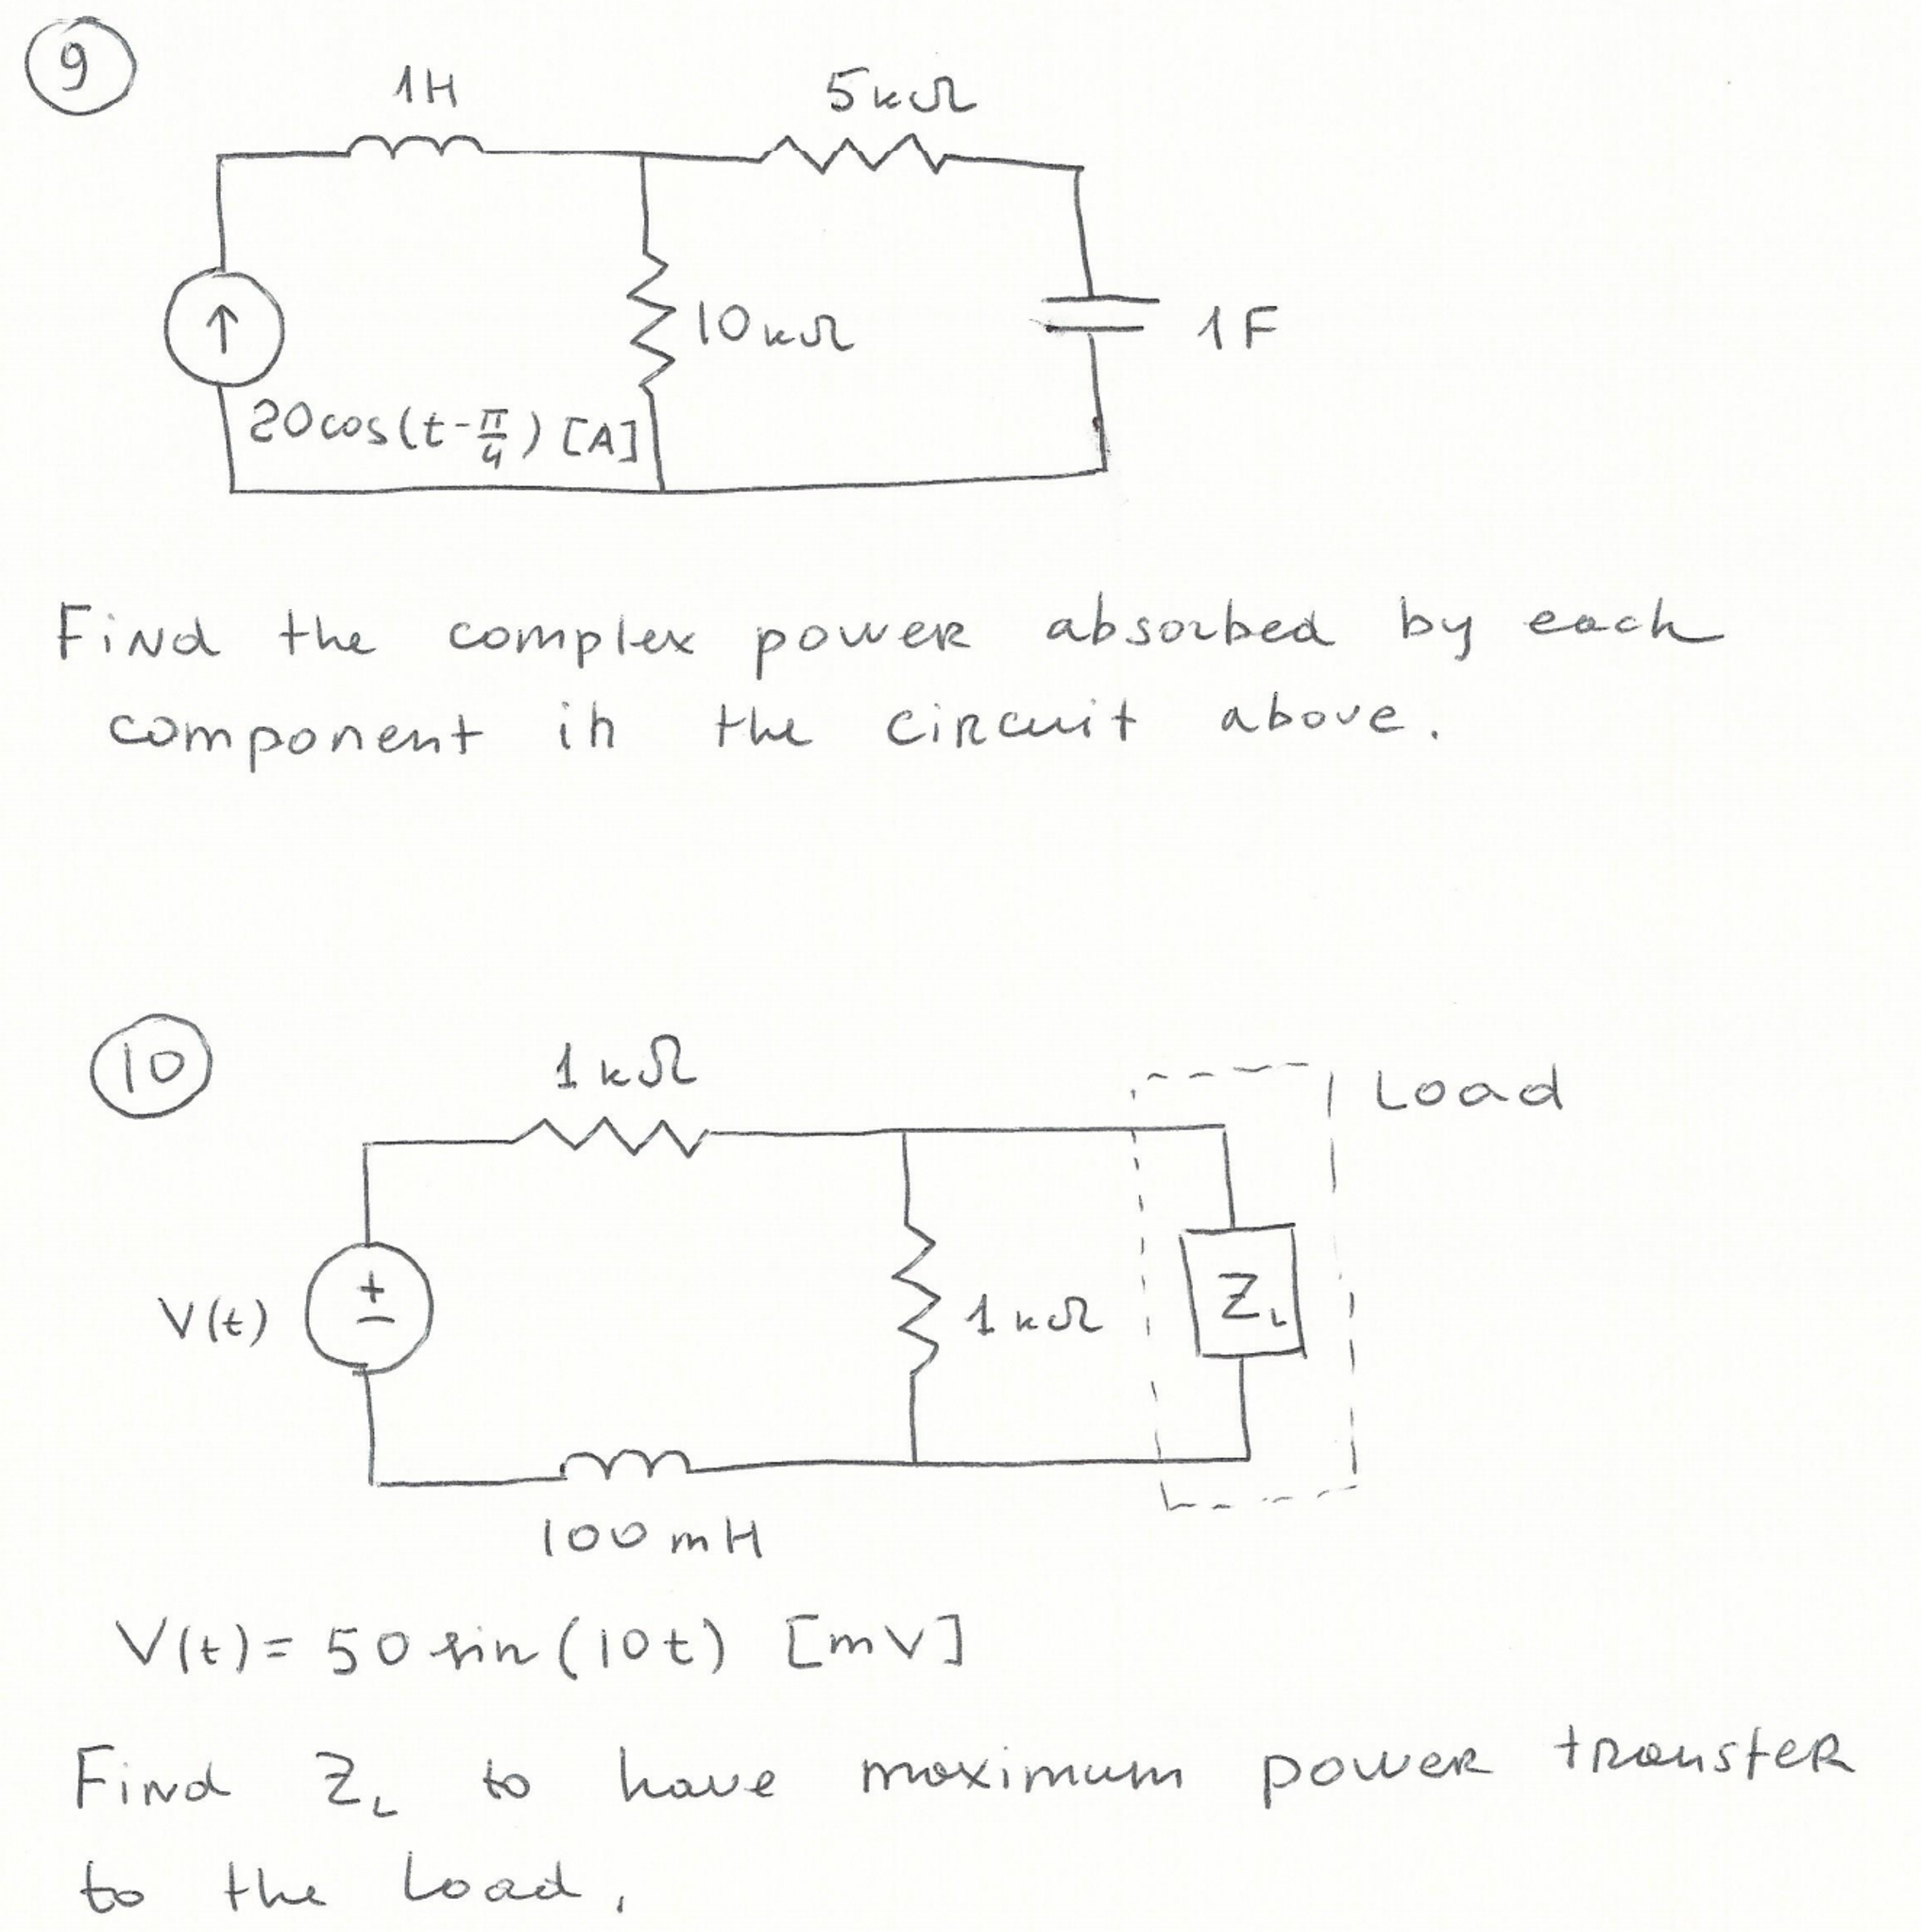 9
1H
5kΩ
10kΩ
1F
↑
20cos(t-π/4) [A]
Find the complex power absorbed by each
component in the circuit above.
10
1kΩ
Load
V(t)
+
−
1kΩ
ZL
100mH
V(t)= 50 sin(10t) [mV]
Find ZL to have maximum power transfer
to the load.